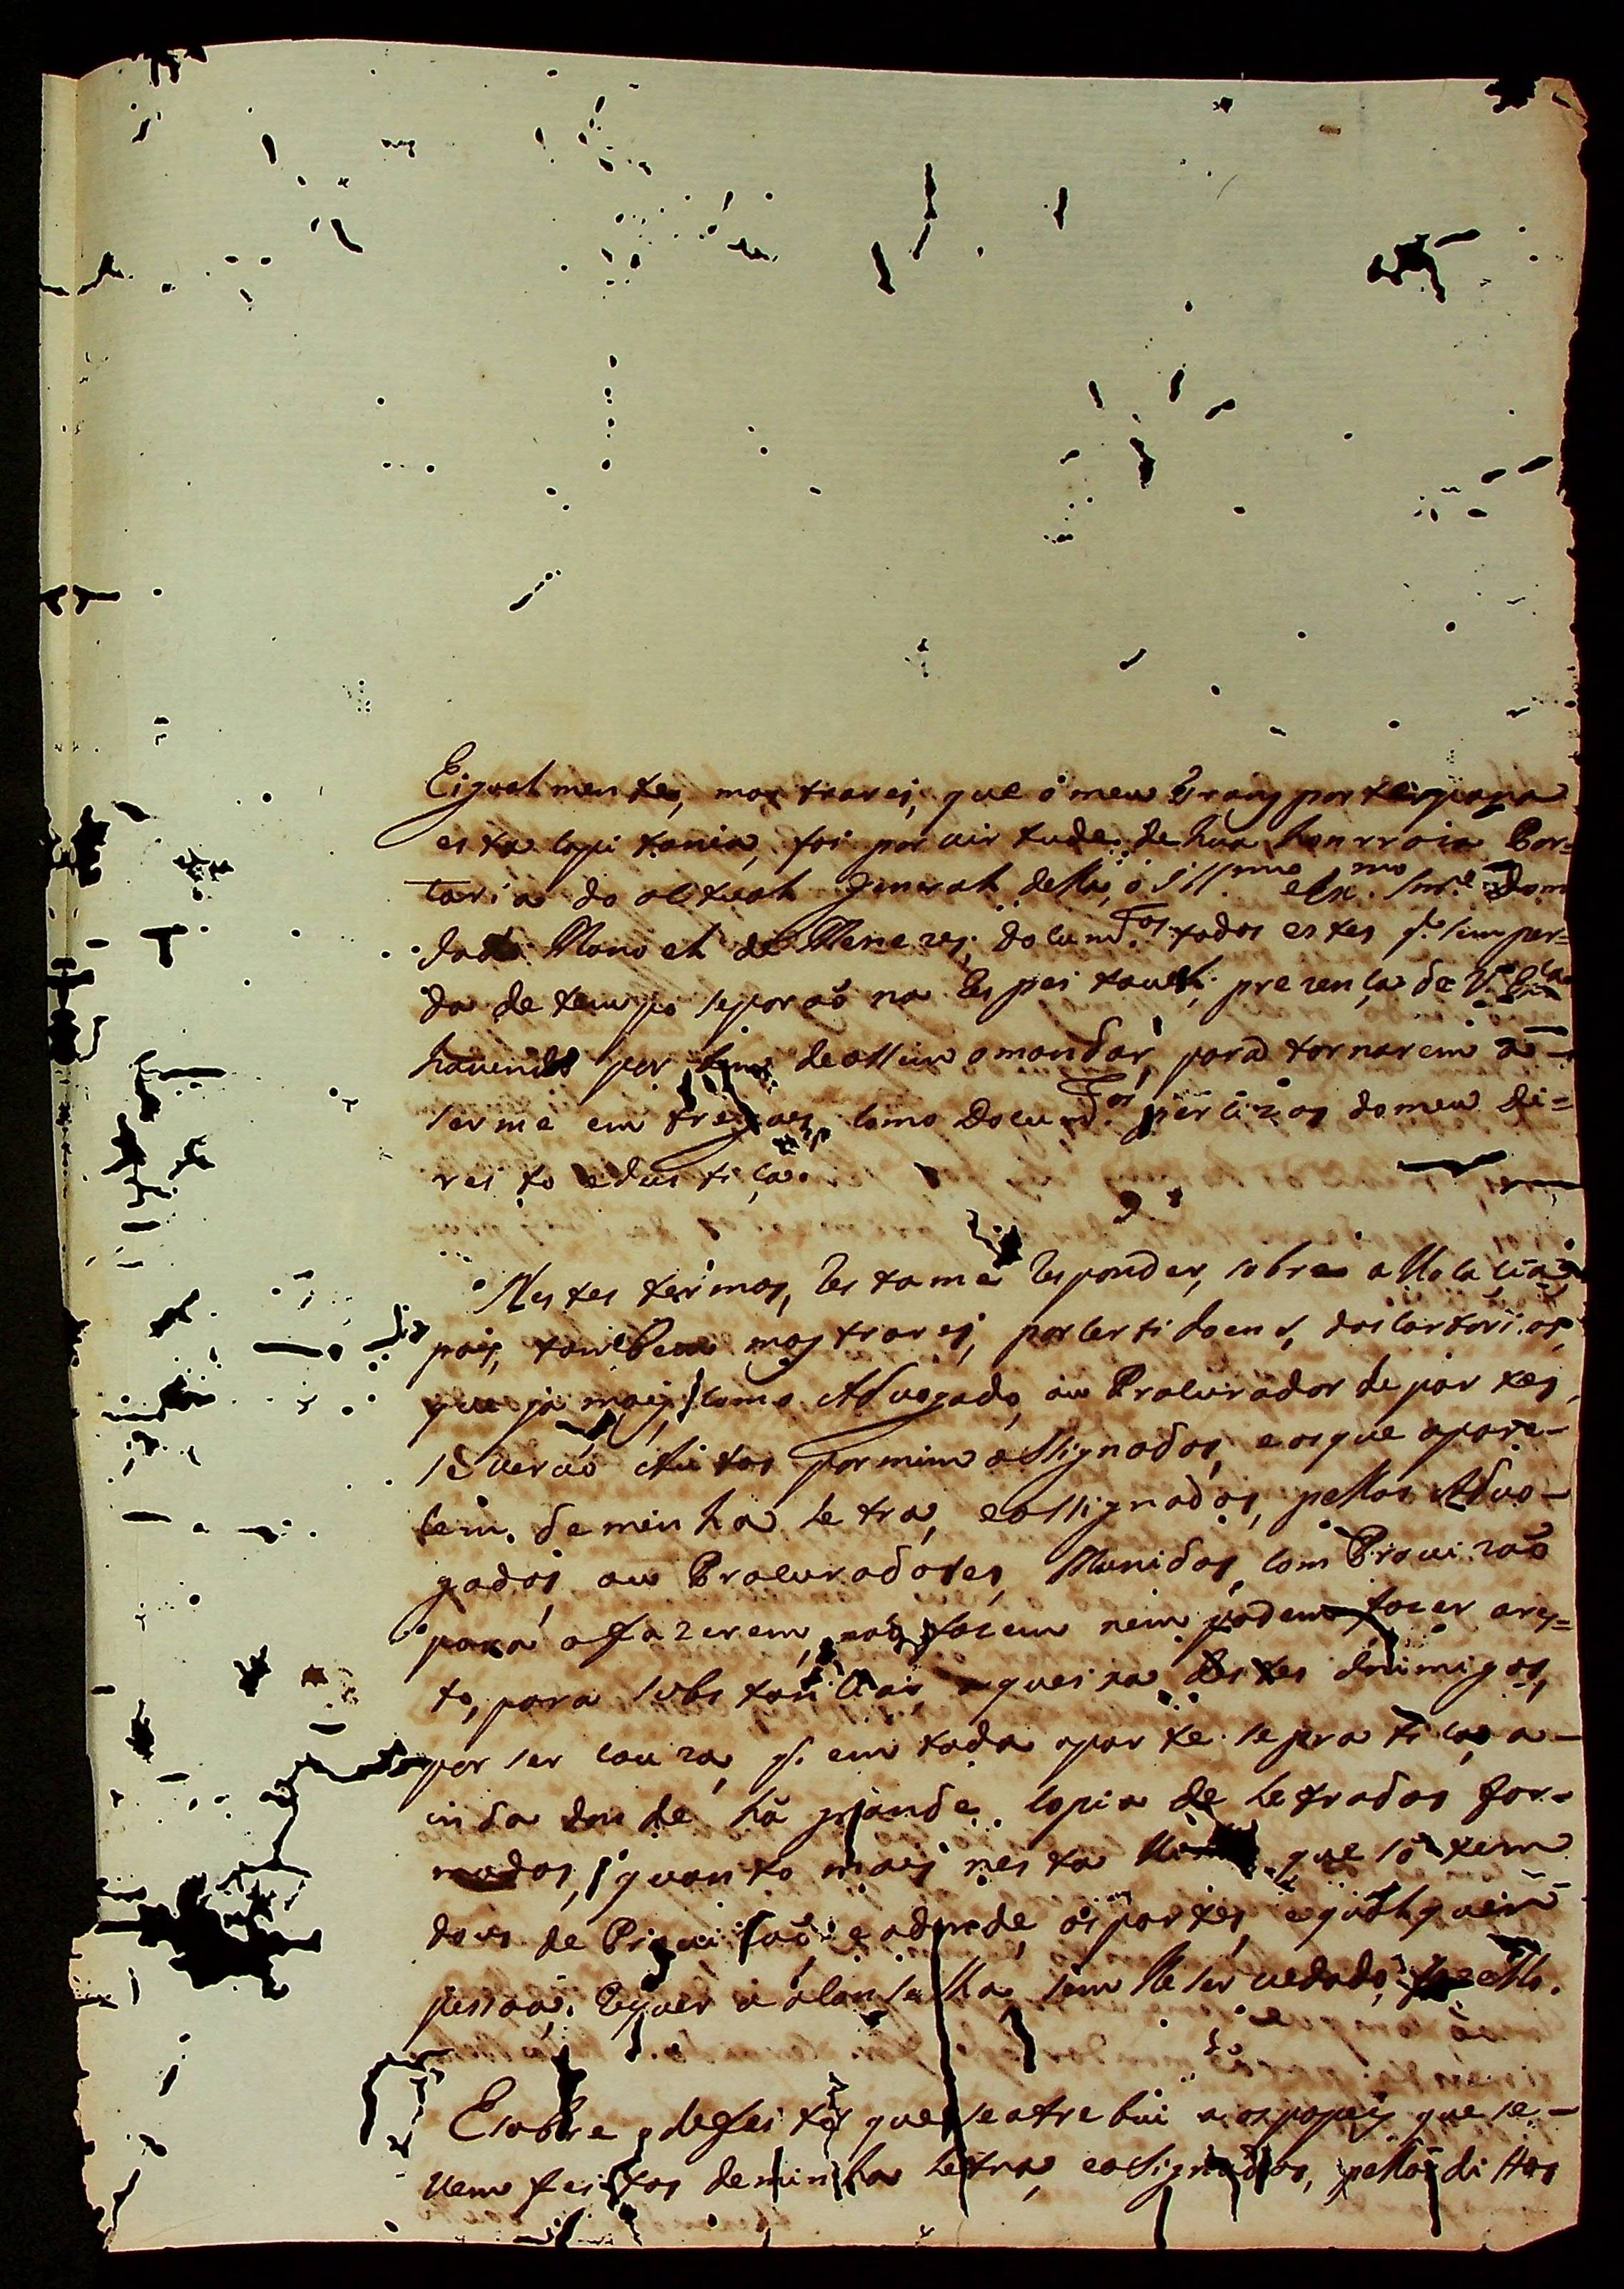 Eigualmentes, mostrarei, que o meu transporte para
esta Capitania, foi por virtude de hua honrroza Por=
taria do actual General della, o Ill.mo e Ex.mo Snr. Dom
Manoel de Menezes, docum.tos todos estes q. sem per=
da de tempo se porão na Respeitavel prezença de V. Ex.cia
havendo por bem de assim o mandar, para tornarem a-
serme entregues como Docum.tos percizos do meu di=
reito e Justiça.
9.
Nestes termos, Restame Responder, sobre a
pois, tambem mostrarei, por Certidoens, dos Cartorios,
que ja mais, como Advogado, ou Procurador de partes,
se verão Autos por mim assignados, e os que apare-
cem, de minha letra, e assignados, pellos Advo-
gados, ou Procuradores, Munidos, com Provizão
para o fazerem, não fazem nem podem fazer
to, para substanciar a queixa destes Inimigos,
por ser couza, q. em toda a parte se pratica, a-
inda donde há grande copia de Letrados for-
mados, quanto mais nesta que só tem
dois de Provizão, e adonde, as partes, e qualquer
pessoa, Requer e aConselha, sem lhe ser vedado,
E sobre o defeito que se atrebui aos papeis que se-
vem feitos de minha letra, e asignados, pellos dittos